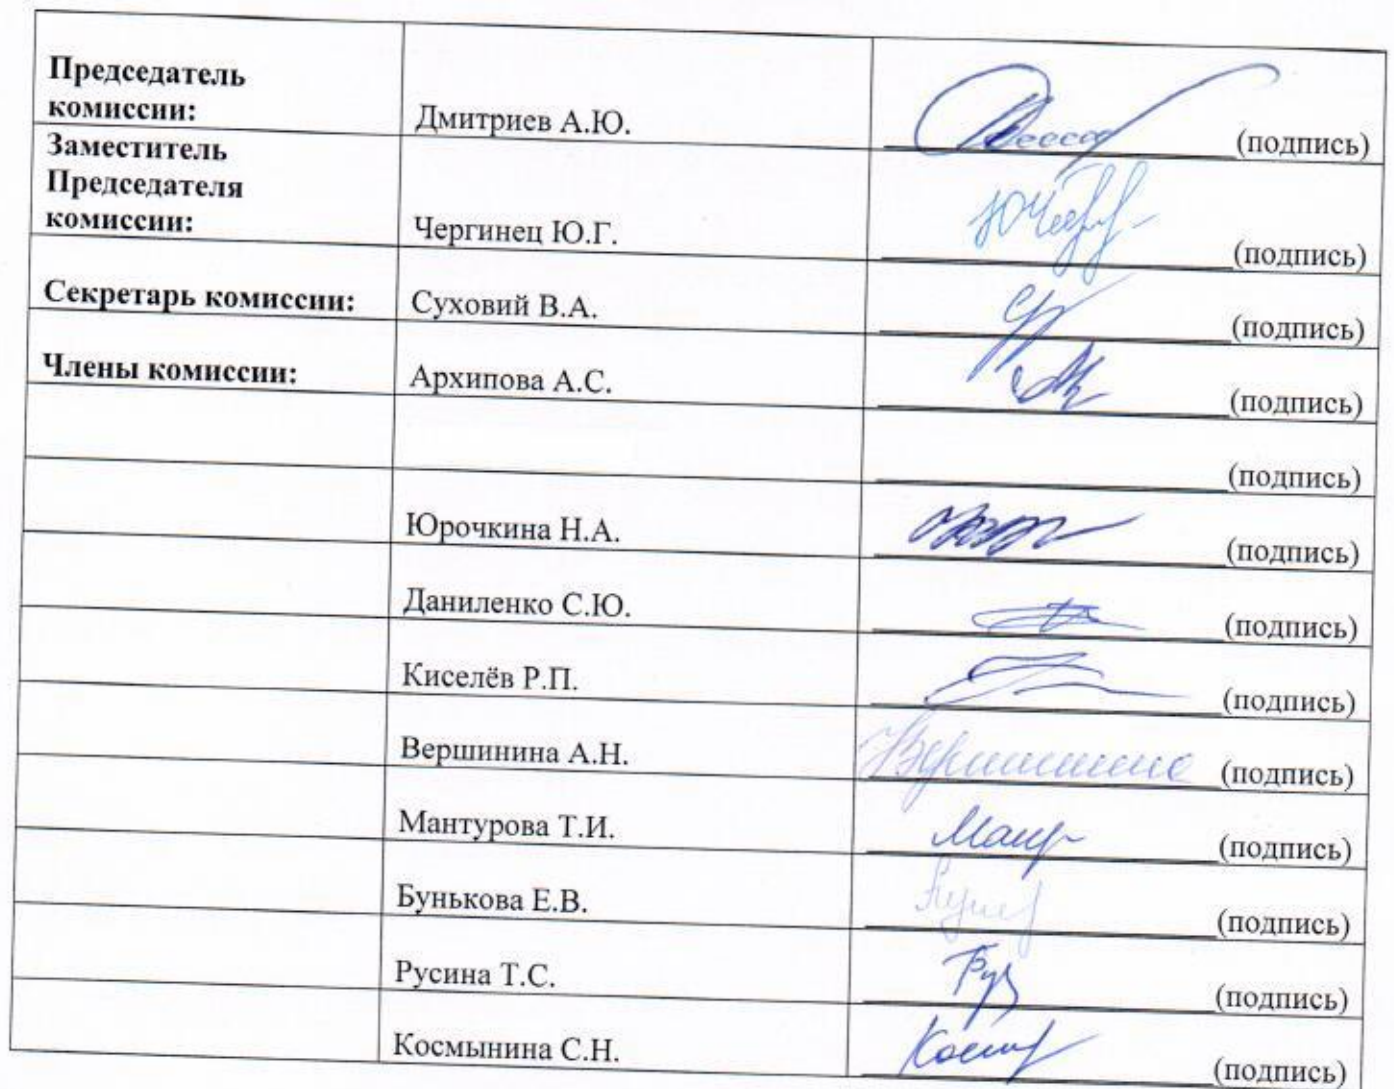 Председатель
комиссии:
Дмитриев А.Ю.
(подпись)
Заместитель
Председателя
комиссии:
Чергинец Ю.Г.
(подпись)
Секретарь комиссии:
Суховий В.А.
(подпись)
Члены комиссии:
Архипова А.С.
(подпись)
(подпись)
Юрочкина Н.А.
(подпись)
Даниленко С.Ю.
(подпись)
Киселёв Р.П.
(подпись)
Вершинина А.Н.
(подпись)
Мантурова Т.И.
(подпись)
Бунькова Е.В.
(подпись)
Русина Т.С.
(подпись)
Космынина С.Н.
(подпись)